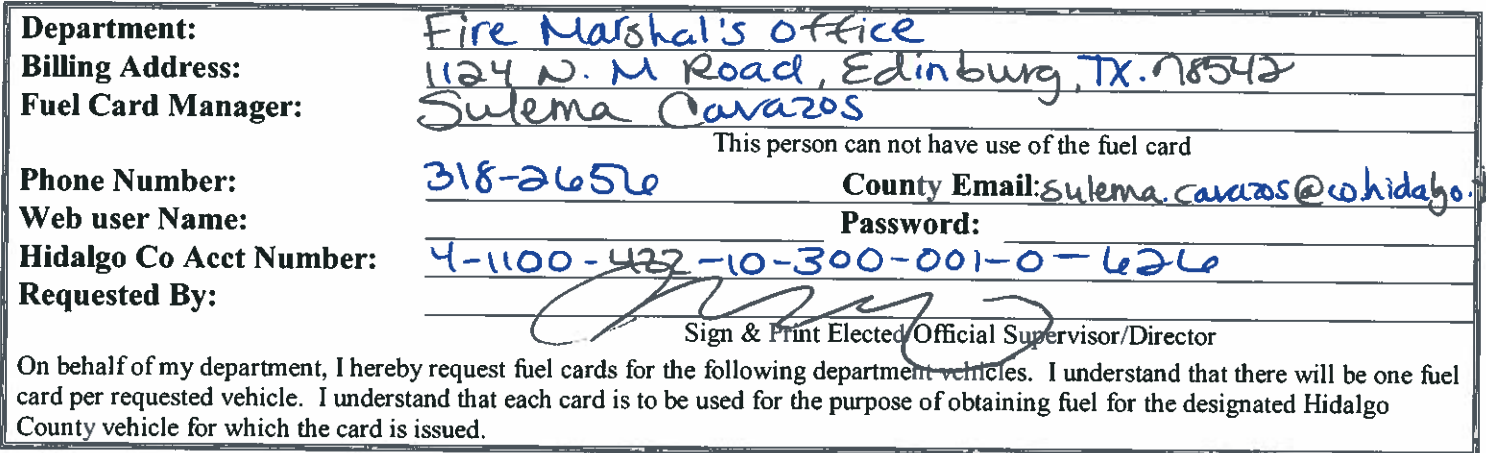 Department: Fire Marshal's office
Billing Address: 1124 N. M Road, Edinburg, TX. 78542
Fuel Card Manager: Sulema Cavazos
This person can not have use of the fuel card
Phone Number: 318-2656 County Email: sulema.cavazos@co.hidalgo.t
Web user Name: Password:
Hidalgo Co Acct Number: 4-1100-422-10-300-001-0-626
Requested By:
Sign & Print Elected Official Supervisor/Director
On behalf of my department, I hereby request fuel cards for the following department vehicles. I understand that there will be one fuel
card per requested vehicle. I understand that each card is to be used for the purpose of obtaining fuel for the designated Hidalgo
County vehicle for which the card is issued.